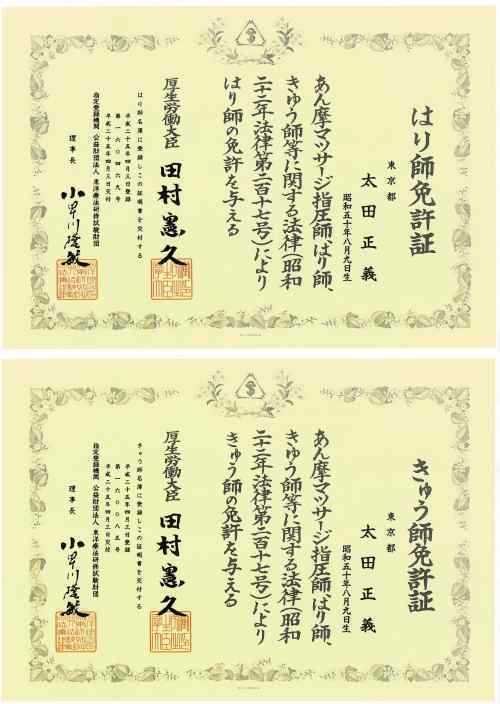 はり師免許証
東京都
太田正義
昭和五十年八月九日生
あん摩マツサージ指圧師、はり師、
きゆう師等に関する法律(昭和
二十二年法律第二百十七号)により
はり師の免許を与える
厚生労働大臣 田村憲久
はり師名簿に登録しこの証明書を交付する
平成二十五年四月三日登録
第一六〇四六九号
平成二十五年四月三日交付
指定登録機関 公益財団法人 東洋療法研修試験財団
理事長 小早川隆敏
きゅう師免許証
東京都
太田正義
昭和五十年八月九日生
あん摩マツサージ指圧師、はり師、
きゆう師等に関する法律(昭和
二十二年法律第二百十七号)により
きゆう師の免許を与える
厚生労働大臣 田村憲久
きゆう師名簿に登録しこの証明書を交付する
平成二十五年四月三日登録
第一六〇〇八五号
平成二十五年四月三日交付
指定登録機関 公益財団法人 東洋療法研修試験財団
理事長 小早川隆敏